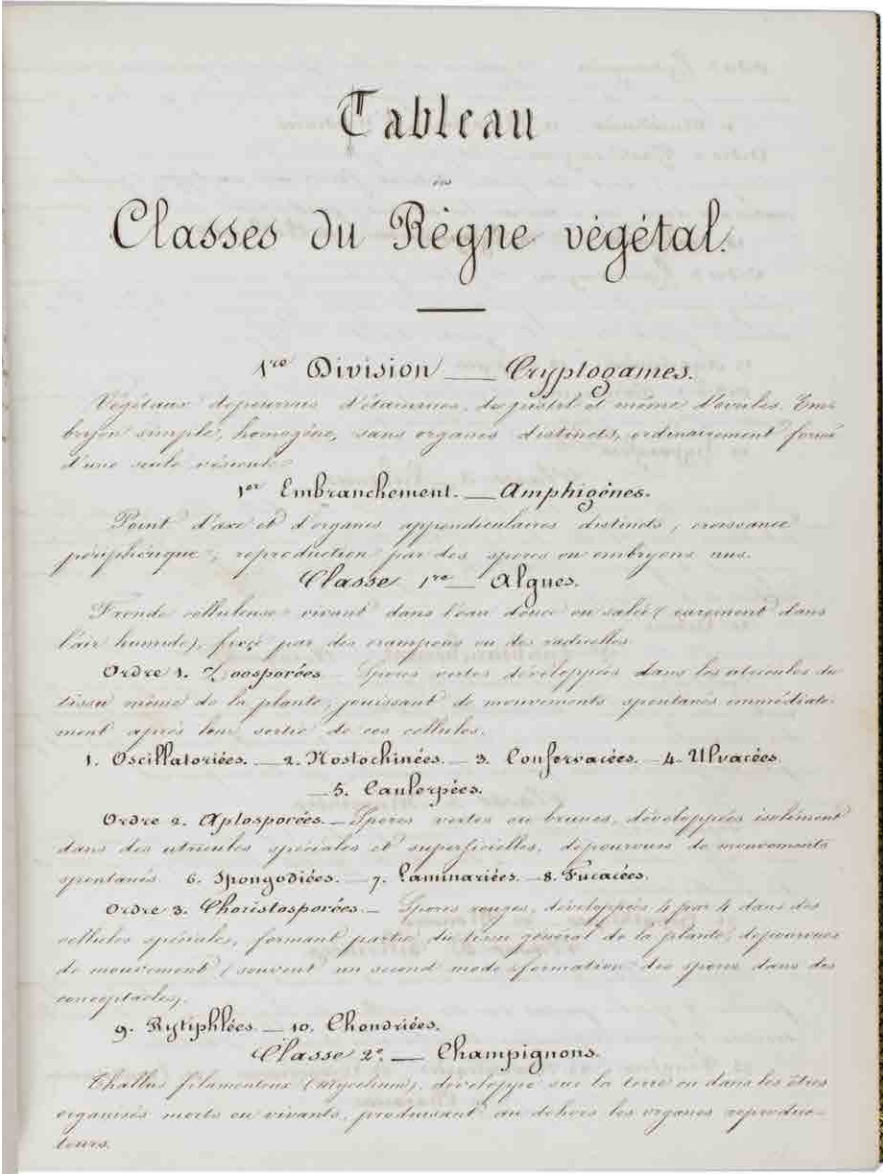 Tableau
des
Classes du Règne végétal.
1re Division — Cryptogames.
Végétaux dépourvus d'étamines, de pistil et même d'ovules. Em-
bryon simple, homogène, sans organes distincts, ordinairement formé
d'une seule vésicule.
1er Embranchement. — Amphigènes.
Point d'axe et d'organes appendiculaires distincts, croissance
périphérique, reproduction par des spores ou embryons nus.
Classe 1re — Algues.
Fronde celluleuse vivant dans l'eau douce ou salée (rarement dans
l'air humide), fixée par des crampons ou des radicelles.
Ordre 1. Zoosporées — Spores vertes développées dans les utricules du
tissu même de la plante, jouissant de mouvements spontanés immédiate-
ment après leur sortie de ces cellules.
1. Oscillatoriées. — 2. Nostochinées. — 3. Confervacées. — 4. Ulvacées.
— 5. Caulerpées.
Ordre 2. Aplosporées. — Spores vertes ou brunes, développées isolément
dans des utricules spéciales et superficielles, dépourvues de mouvements
spontanés. 6. Spongodiées. — 7. Laminariées. — 8. Fucacées.
Ordre 3. Choristosporées. — Spores rouges, développées 4 par 4 dans des
cellules spéciales, formant partie du tissu général de la plante, dépourvues
de mouvement (souvent un second mode formation des spores dans des
conceptacles).
9. Rytiphlées. — 10. Chondriées.
Classe 2e. — Champignons.
Thallus filamenteux (mycelium), développé sur la terre ou dans les êtres
organisés morts ou vivants, produisant au dehors les organes reproduc-
teurs.